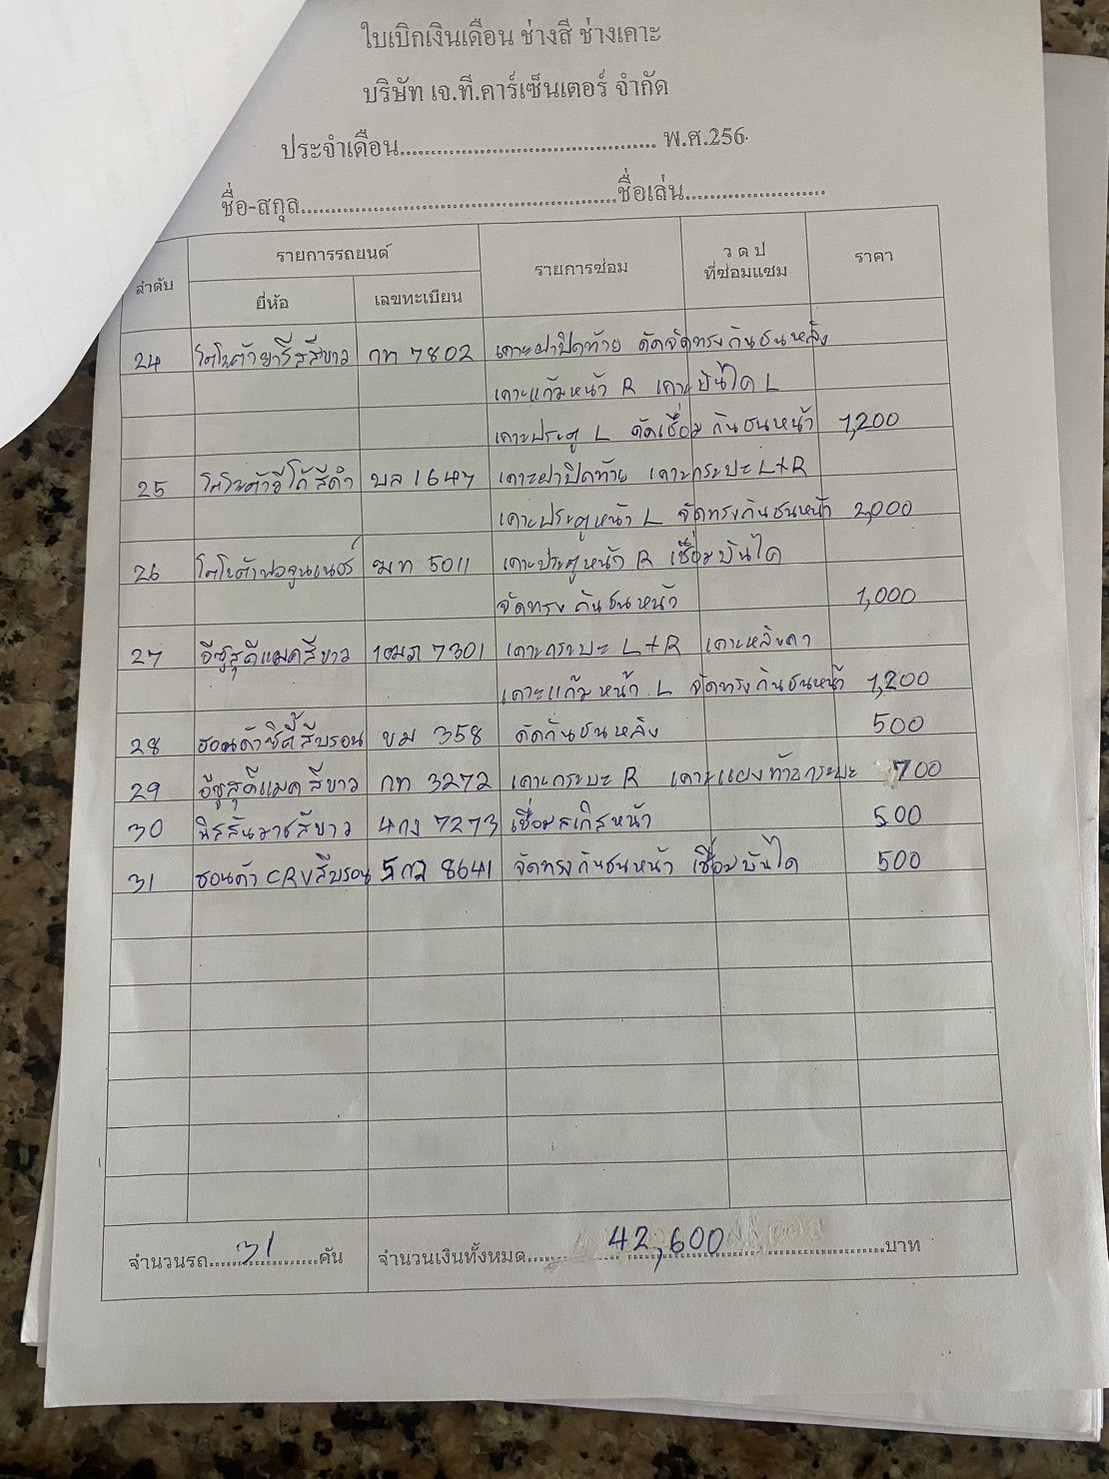 ใบเบิกเงินเดือน ช่างสี ช่างเคาะ
บริษัท เจ.ที.คาร์เซ็นเตอร์ จำกัด
ประจำเดือน........................................ พ.ศ.256
ชื่อ-สกุล..................................................ชื่อเล่น.......................
ลำดับ รายการรถยนต์ รายการซ่อม ว ด ป ที่ซ่อมแซม ราคา
ยี่ห้อ เลขทะเบียน
24 โตโยต้ายารีสสีขาว กท 7802 เคาะฝาปิดท้าย ดัดจัดทรงกันชนหลัง
เคาะแก้มหน้า R เคาะบันได L
เคาะประตู L ดัดเชื่อมกันชนหน้า 1,200
25 โตโยต้าวีโก้สีดำ บล 1647 เคาะฝาปิดท้าย เคาะกระบะ L+R
เคาะประตูหน้า L จัดทรงกันชนหน้า 2,000
26 โตโยต้าฟอจูนเนอร์ ฆท 5011 เคาะประตูหน้า R เชื่อมบันได
จัดทรงกันชนหน้า 1,000
27 อีซูสุดีแมคสีขาว 7301 เคาะกระบะ L+R เคาะหลังคา
เคาะแก้มหน้า L จัดทรงกันชนหน้า 1,200
28 ฮอนด้าซิตี้สีบรอน ขม 358 ดัดกันชนหลัง 500
29 อีซูสุดีแมคสีขาว กท 3272 เคาะกระบะ R เคาะแผงท้ายกระบะ 700
30 นิสสันมาชสีขาว 4กง 7273 เชื่อมสเกิสหน้า 500
31 ฮอนด้า CRV สีบรอน 8641 จัดทรงกันชนหน้า เชื่อมบันได 500
จำนวนรถ....31.........คัน จำนวนเงินทั้งหมด............42,600........................บาท